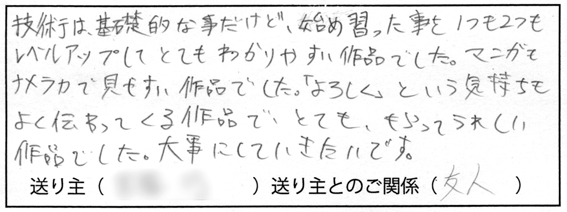 技術は、基礎的な事だけど、始め習った事を1つも2つも
レベルアップしてとてもわかりやすい作品でした。マニガも
ナメラカで見やすい作品でした。「よろしく」という気持ちも
よく伝わってくる作品で、とても、もらってうれしい
作品でした。大事にしていきたいです。
送り主（ ）送り主とのご関係（友人）